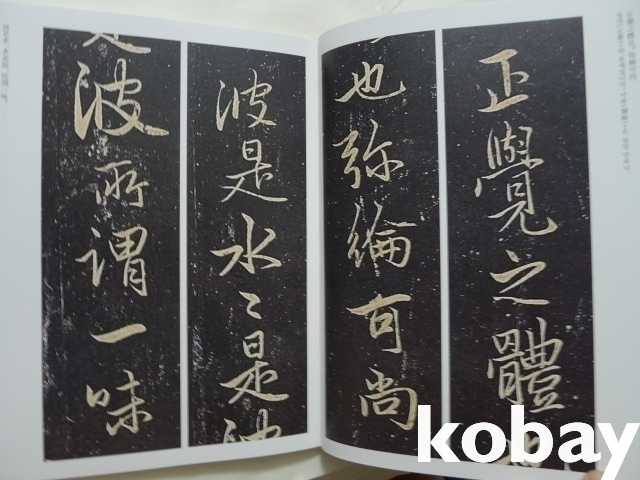 正覺之體
也弥綸可尚
波是水〻是波
是波所謂一味
kobay